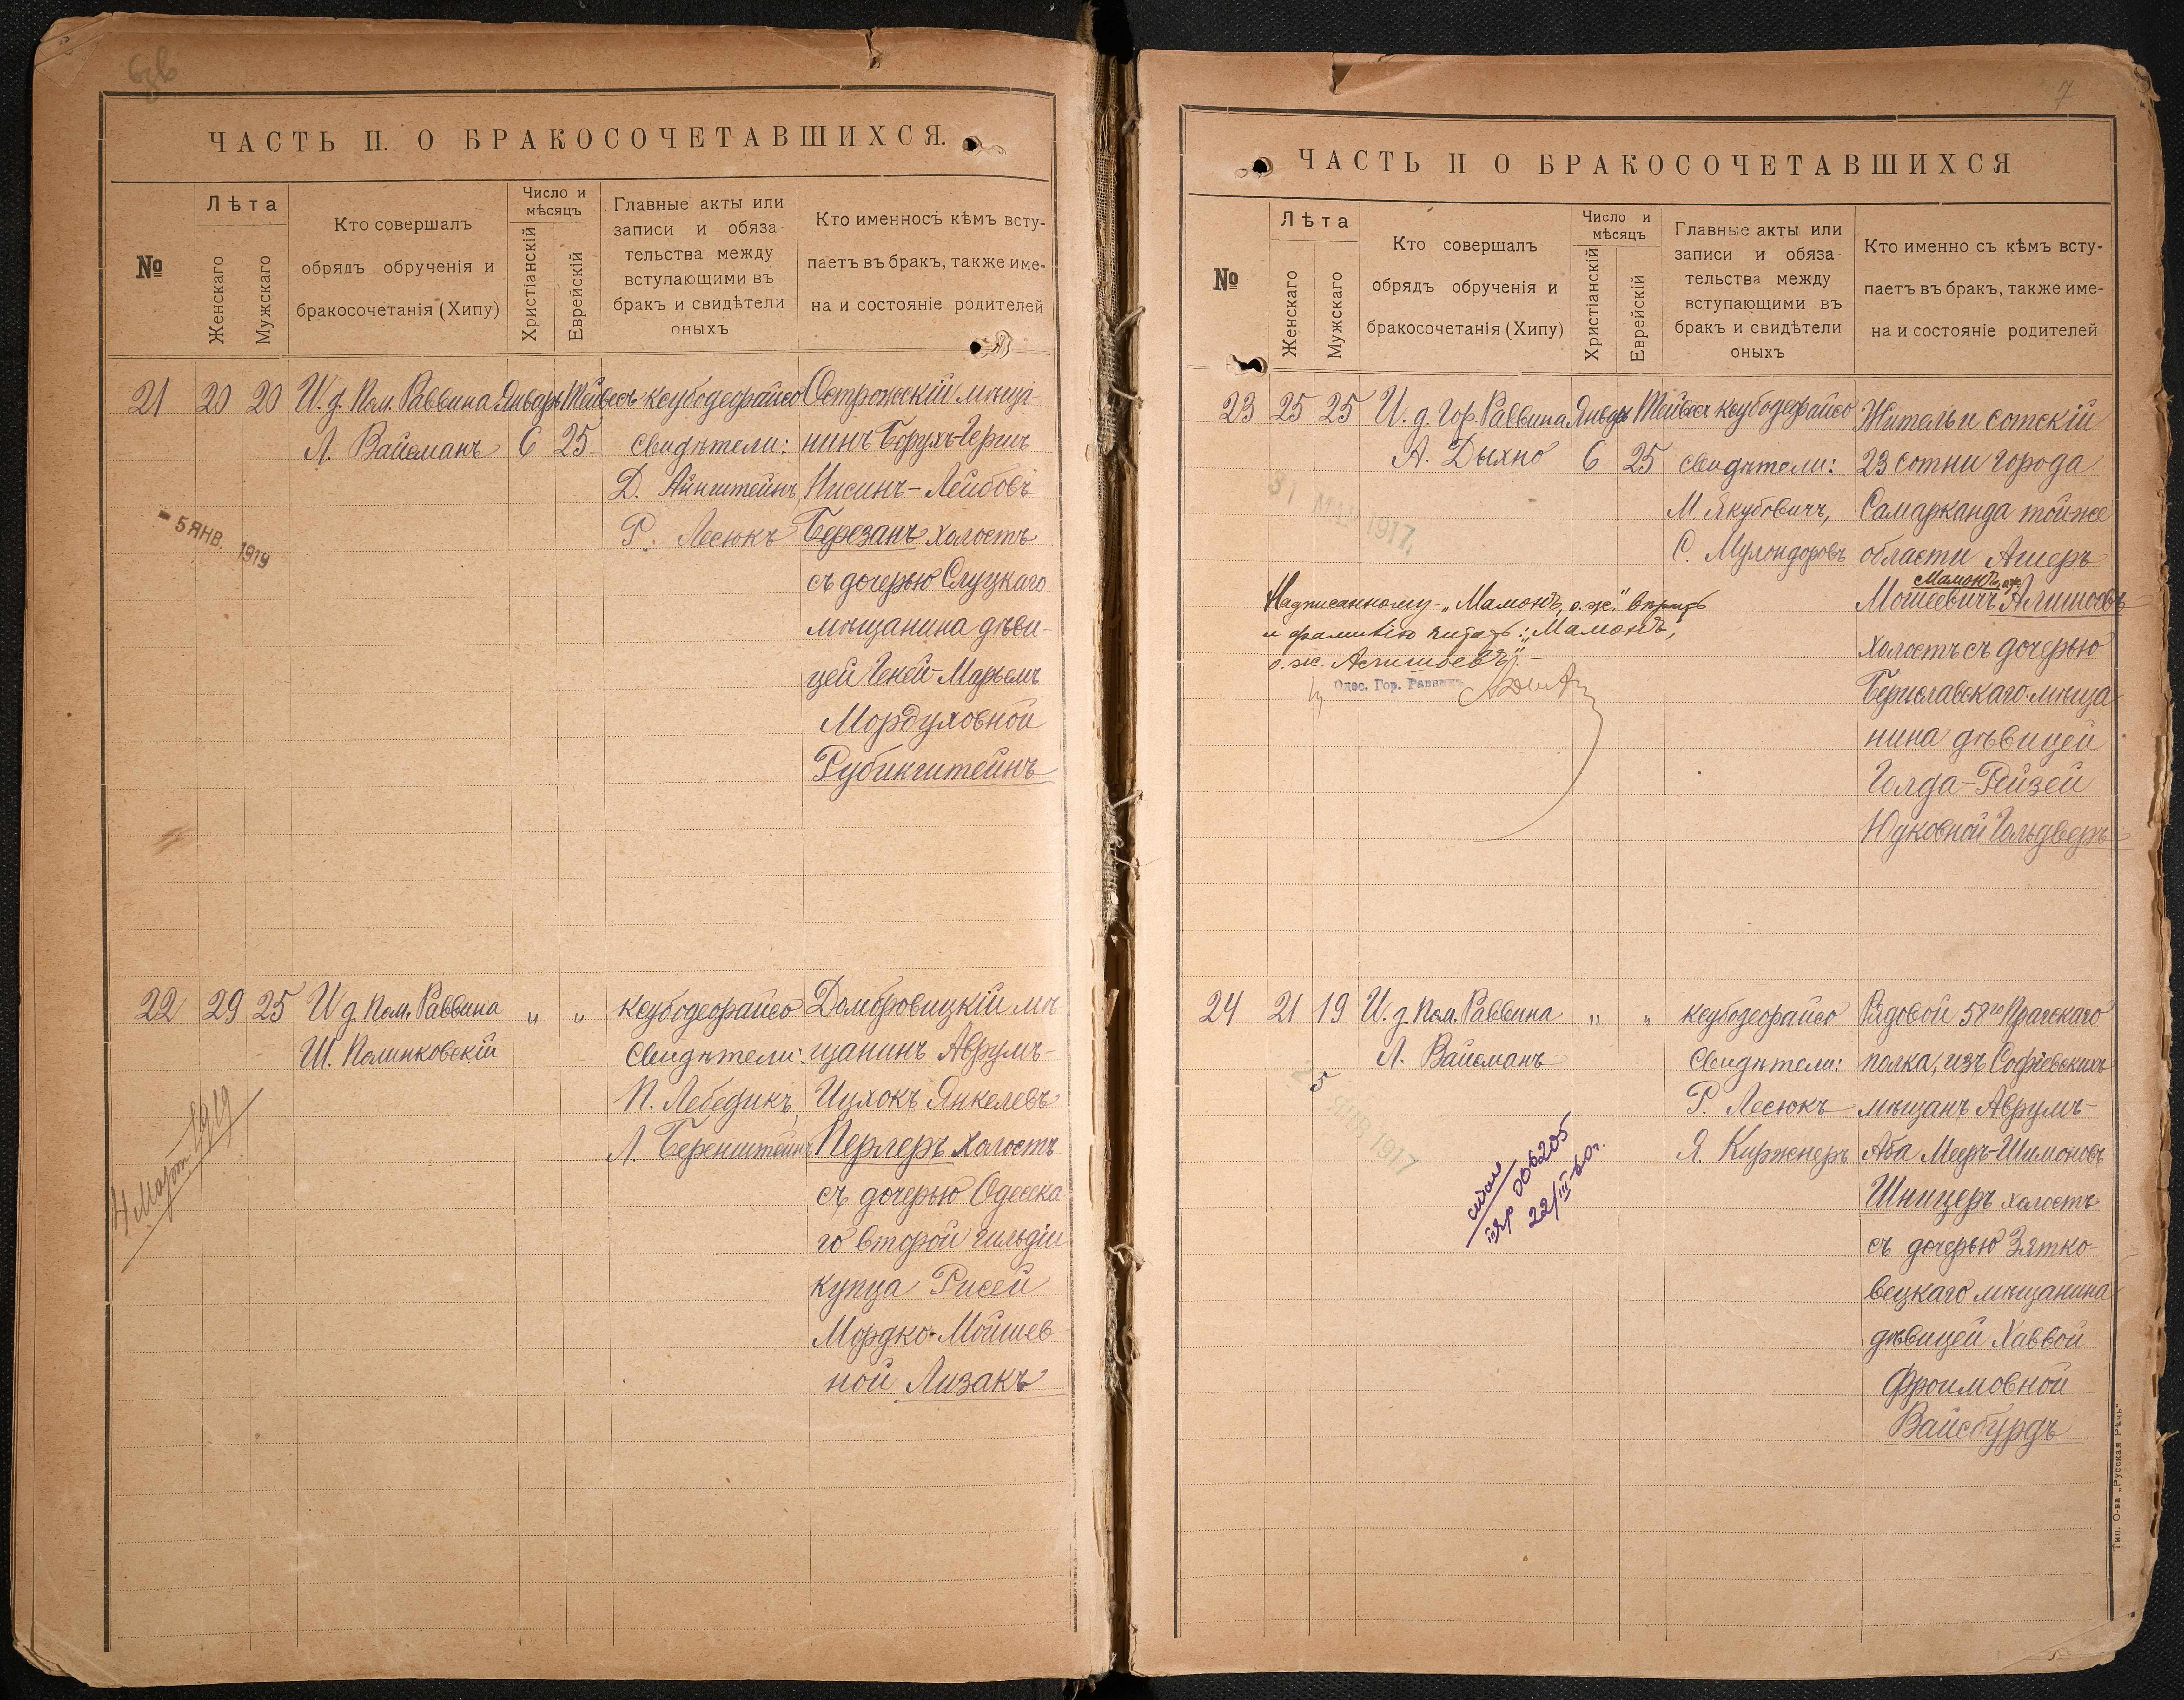 ЧАСТЬ II. О БРАКОСОЧЕТАВШИХСЯ.
№
Лѣта
Женскаго
Мужскаго
Кто совершалъ
обрядъ обрученія и
бракосочетанія (Хипу)
Число и
мѣсяцъ
Христіанскій
Еврейскій
Главные акты или
записи и обяза-
тельства между
вступающими въ
бракъ и свидѣтели
оныхъ
Кто именносъ кѣмъ всту-
паетъ въ бракъ, также име-
на и состояніе родителей
21 20 20
И. д. Пом. Раввина
Л. Вайсманъ
Январь
6
Тейвесъ
25
ксубодеорайсо
свидѣтели:
Д. Айнштейнъ
Р. Лесюкъ
Острожскій мѣща-
нинъ Борухъ-Герш
Нисинъ-Лейбовъ
Березанъ холостъ
съ дочерью Слуцкаго
мѣщанина дѣви-
цей Геней-Марьемъ
Мордуховной
Рубинштейнъ
- 5 ЯНВ. 1919
22 29 25
И д. Пом. Раввина
Ш. Полинковскій
" "
ксубодеорайсо
Свидѣтели:
П. Лебедикъ
Л. Беренштейнъ
Домбровицкій мѣ-
щанинъ Аврумъ-
Ицхокъ Янкелевъ
Перлеръ холостъ
съ дочерью Одесска
го второй гильдіи
купца Рисей
Мордко-Мойшев
ной Лизакъ
4 Март 1919
7
ЧАСТЬ II О БРАКОСОЧЕТАВШИХСЯ
№
Лѣта
Женскаго
Мужскаго
Кто совершалъ
обрядъ обрученія и
бракосочетанія (Хипу)
Число и
мѣсяцъ
Христіанскій
Еврейскій
Главные акты или
записи и обяза
тельства между
вступающими въ
бракъ и свидѣтели
оныхъ
Кто именно съ кѣмъ всту-
паетъ въ бракъ, также име-
на и состояніе родителей
23 25 25
И. д. Гор. Раввина
А. Дыхно
Январь
6
Тейвесъ
25
ксубодеорайсо
свидѣтели:
М. Якубовичъ,
С. Мулондоровъ
Житель и сотскій
23 сотни города
Самарканда той-же
области Ашеръ-
Мамонъ, о.ж.
Мошеевичъ Алишоевъ
холостъ съ дочерью
Бериславскаго мѣща
нина дѣвицей
Голда-Рейзей
Юдковной Гольдверъ
31 МАЙ 1917
Надписанному - „Мамонъ, о.ж." вѣрить
и фамилію читать: „Мамонъ,
о.ж. Алишоевъ". -
Одес. Гор. Раввинъ
24 21 19
И. д. Пом. Раввина
Л. Вайсманъ
" "
ксубодеорайсо
Свидѣтели:
Р. Лесюкъ
Я. Киржнеръ
Рядовой 58го Прагскаго
полка, изъ Софіевскихъ
мѣщанъ Аврумъ-
Аба Мееръ-Шимоновъ
Шницеръ холостъ
съ дочерью Зятко-
вецкаго мѣщанина
дѣвицей Хаввой
Фроимовной
Вайсбурдъ
ЯНВ 1917
006205
22/III-60г.
Тип. О-ва „Русская Рѣчь"